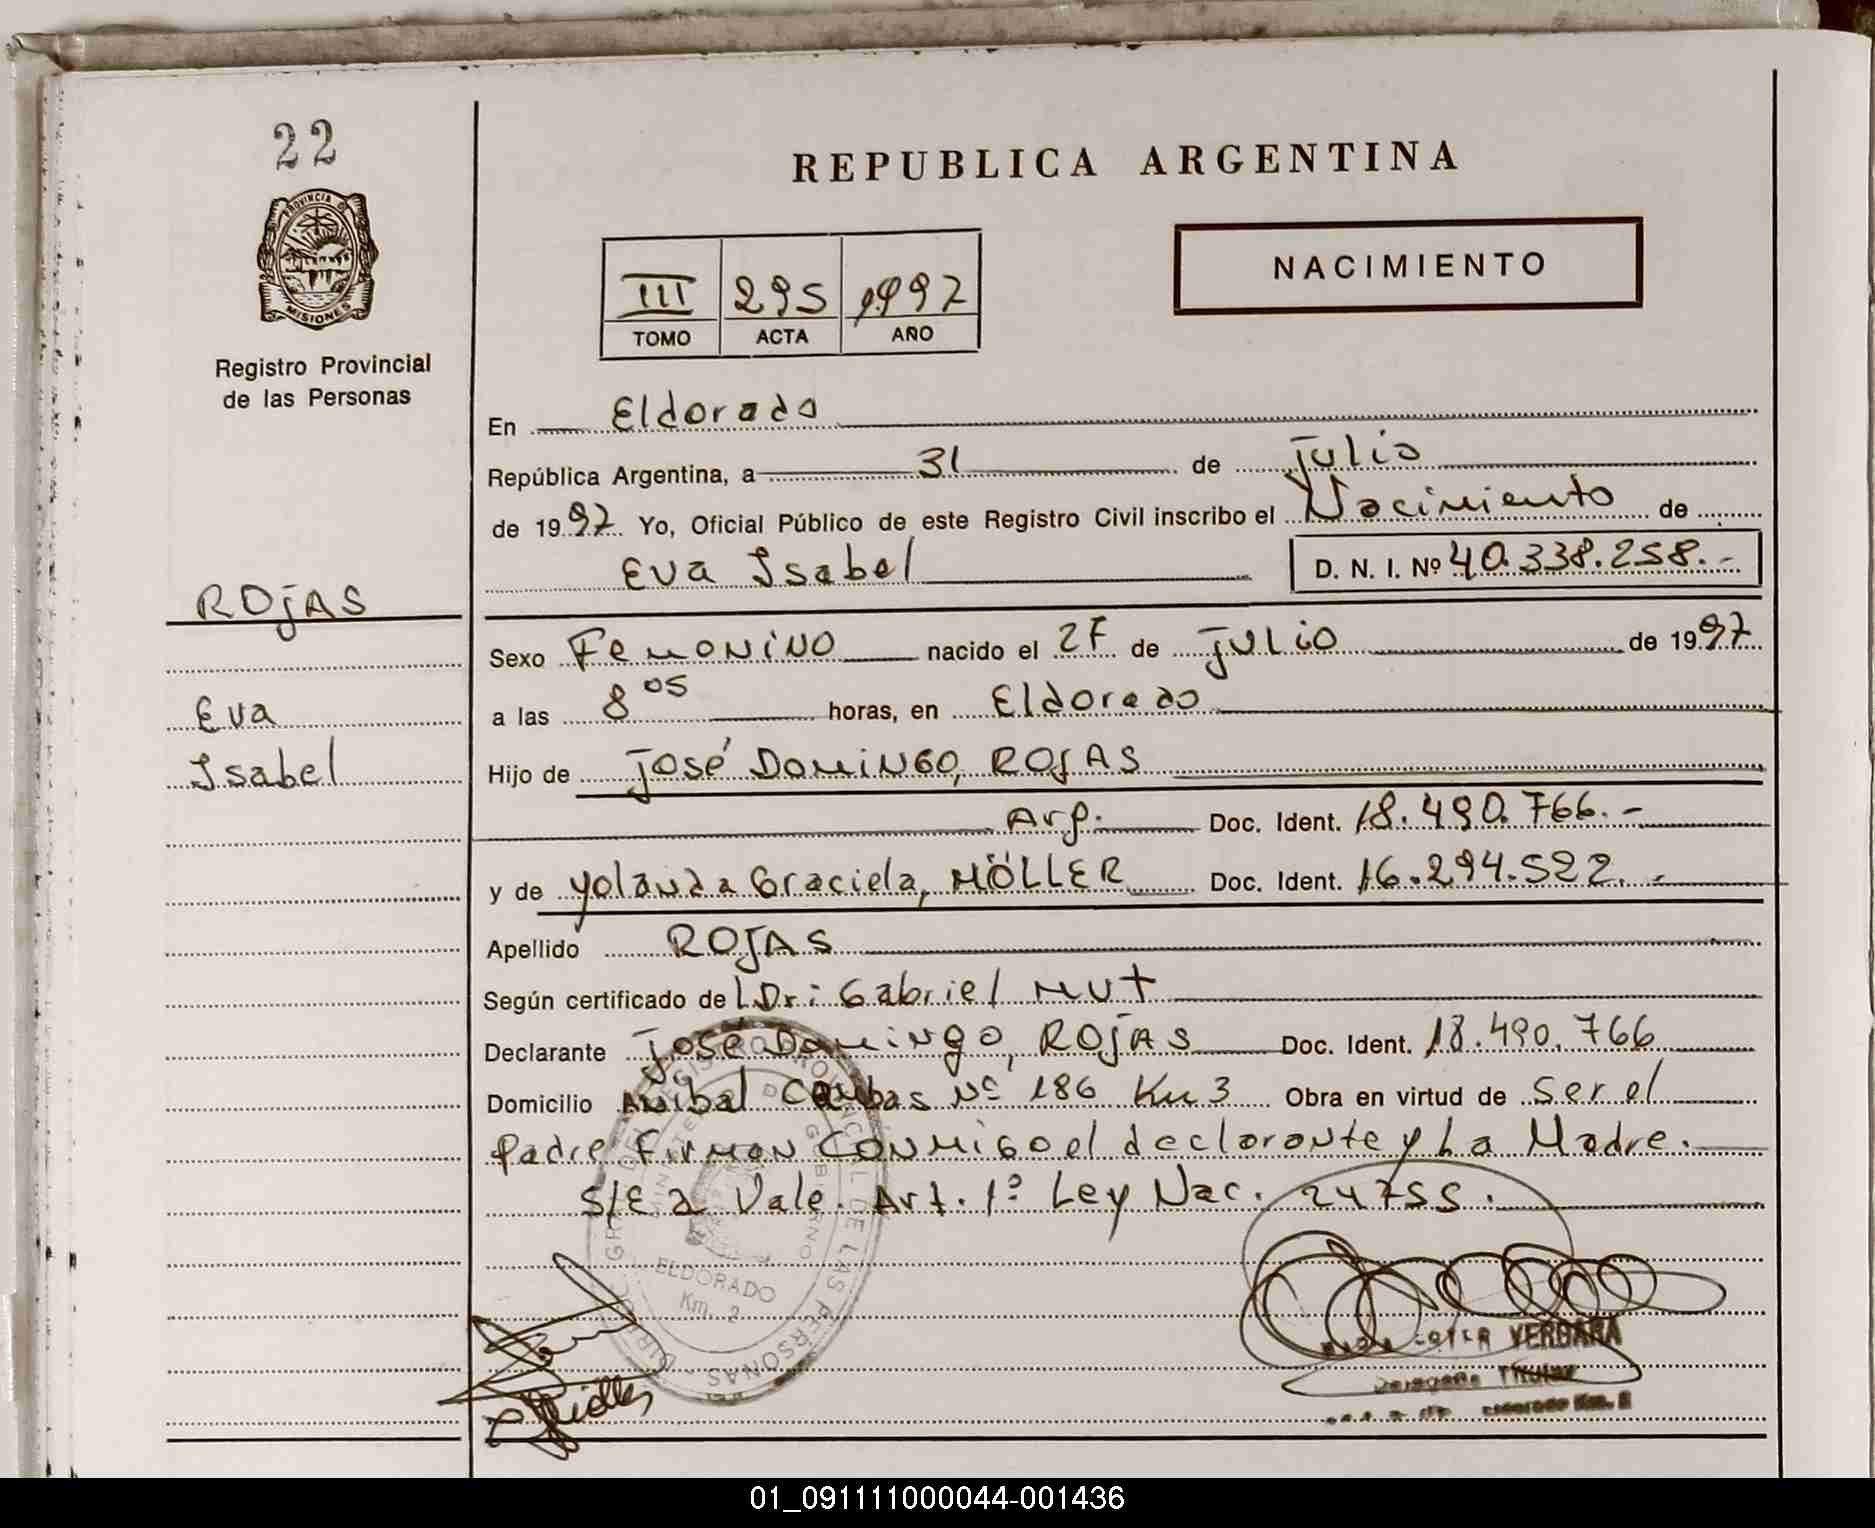 22
PROVINCIA D
MISIONES
Registro Provincial
de las Personas
REPUBLICA ARGENTINA
NACIMIENTO
III 295 1997
TOMO ACTA AÑO
En Eldorado
República Argentina, a 31 de julio
de 1997 Yo, Oficial Público de este Registro Civil inscribo el Nacimiento de
Eva Isabel D. N. I. Nº 40.338.258.-
ROjAS
Eva
Isabel
Sexo Femonino nacido el 27 de julio de 1997
a las 8 05 horas, en Eldorado
Hijo de José Domingo, ROJAS
Arg. Doc. Ident. 18.490.766.-
y de Yolanda Graciela, MÖLLER Doc. Ident. 16.294.522.-
Apellido ROJAS
Según certificado de l Dr: Gabriel Mut
Declarante José Domingo, ROJAS Doc. Ident. 18.490.766
Domicilio Anibal Nº 186 Km 3 Obra en virtud de ser el
Padre Firman conmigo el declarante y La Madre.
S/E a Vale. Art. 1º Ley Nac. 24755.
ELDORADO
Km. 2
VERGARA
Titular
Eldorado Km. 2
01_091111000044-001436